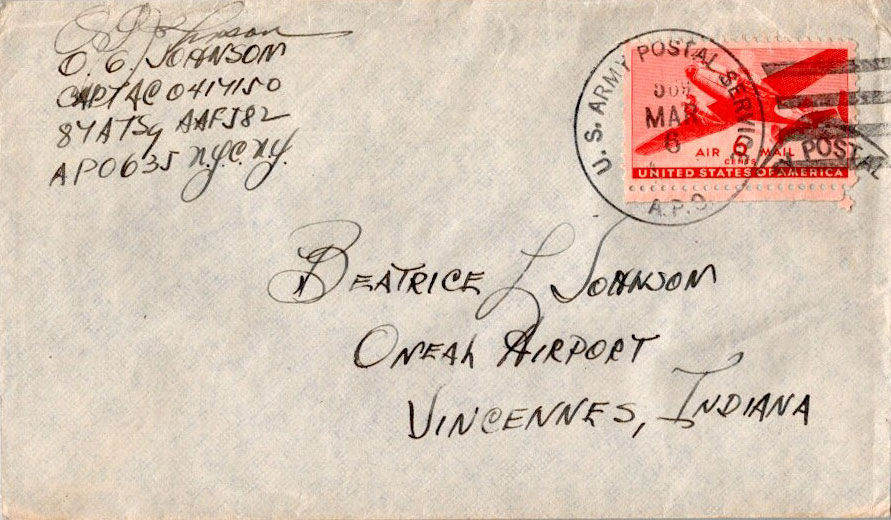 O. G. JOHNSON
CAPT AC 0417150
87 AT Sq AAF 582
APO 635 N.Y.C. N.Y.
U. S. ARMY POSTAL SERVICE
MAR
6
A.P.O.
AIR 6 MAIL
CENTS
UNITED STATES OF AMERICA
POSTAL
BEATRICE L JOHNSON
ONEAL AIRPORT
VINCENNES, INDIANA